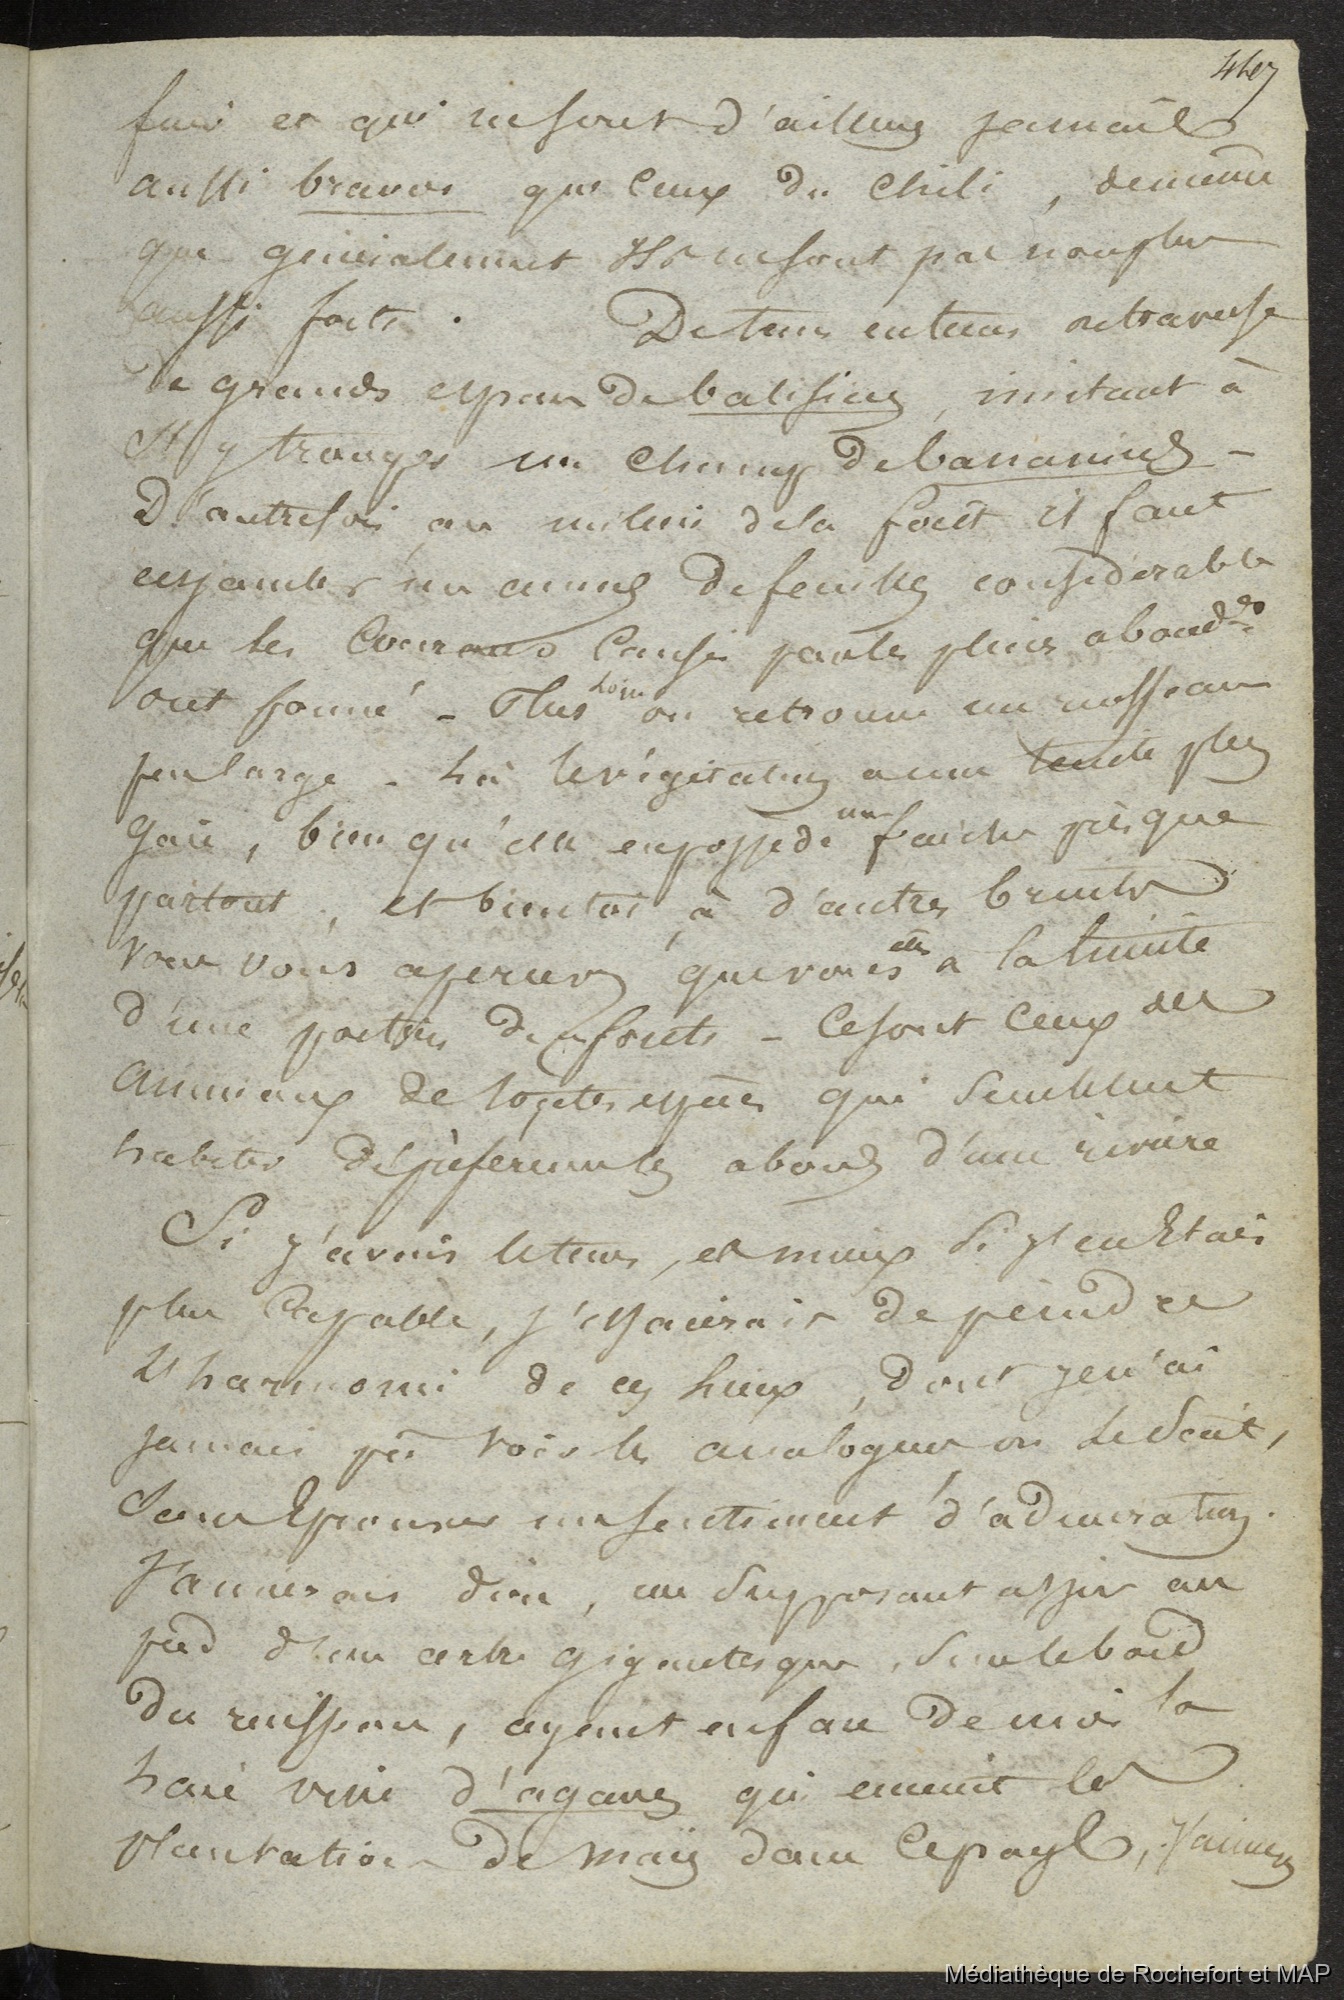 447
fuir et qui ne sont d'ailleurs jamais
aussi braves que ceux du Chili, de même
que généralement Ils ne sont pas non plus
aussi forts. De tems en tems on traverse
de grands espaces de balisiers, imitant à
s'y tromper un champ de bananiers -
D'autrefois au milieu de la forêt il faut
enjamber un amas de feuilles considérable
que les Courans causés par les pluies abond.tes
ont formé - Plus loin on retrouve un ruisseau
peu large - Là la végétation a une teinte plus
gaie, bien qu'elle en possède une fraiche presque
partout, et bientot, à d'autres bruits
vous vous apercevez que vous êtes à la limite
d'une partie de ces forets - Ce sont ceux des
animaux de toutes espèces qui semblent
habiter de préférence les abords d'une rivière
Si j'avais le tems, et mieux si j'en Etais
plus Capable, j'essaierais de peindre
L'harmonie de ces lieux, dont je n'ai
jamais pu voir les analogues on le sait,
sans Eprouver un sentiment d'admiration.
J'aimerais dire, me supposant assis au
pied d'un arbre gigantesque, sur le bord
du ruisseau, ayant en face de moi la
haie vive d'agaves qui enceint les
plantations de maïs dans ce pays, J'aimerais
Médiathèque de Rochefort et MAP